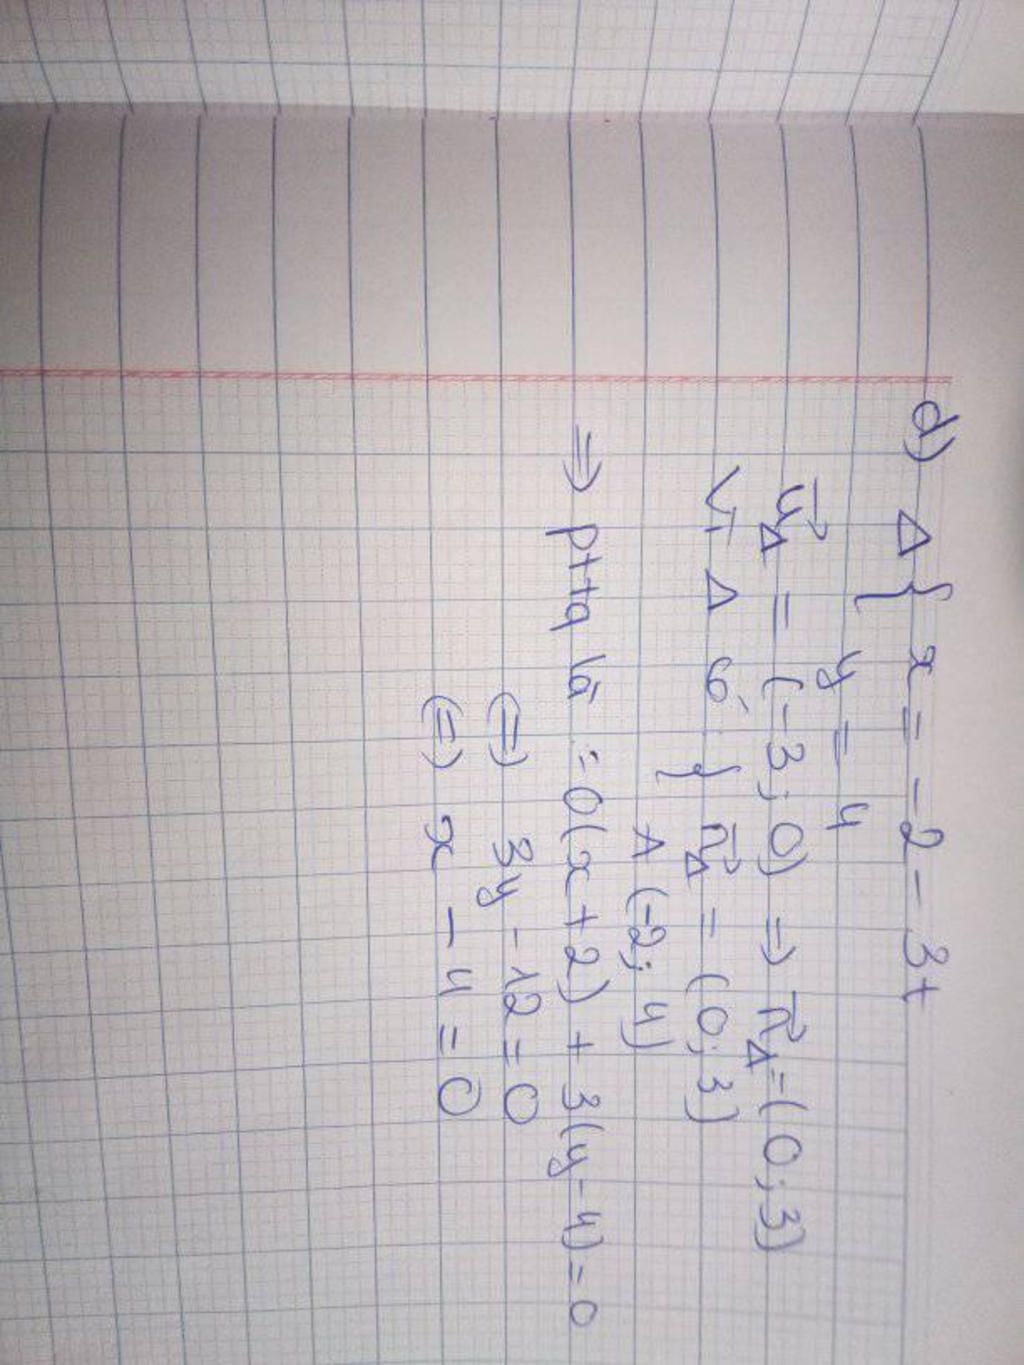 d) Δ { x = -2 - 3t
y = 4
u⃗Δ = (-3; 0) ⇒ n⃗Δ = (0; 3)
Vì Δ có } n⃗Δ = (0; 3)
A (-2; 4)
⇒ pttq là : 0(x + 2) + 3(y - 4) = 0
⇔ 3y - 12 = 0
⇔ x - 4 = 0